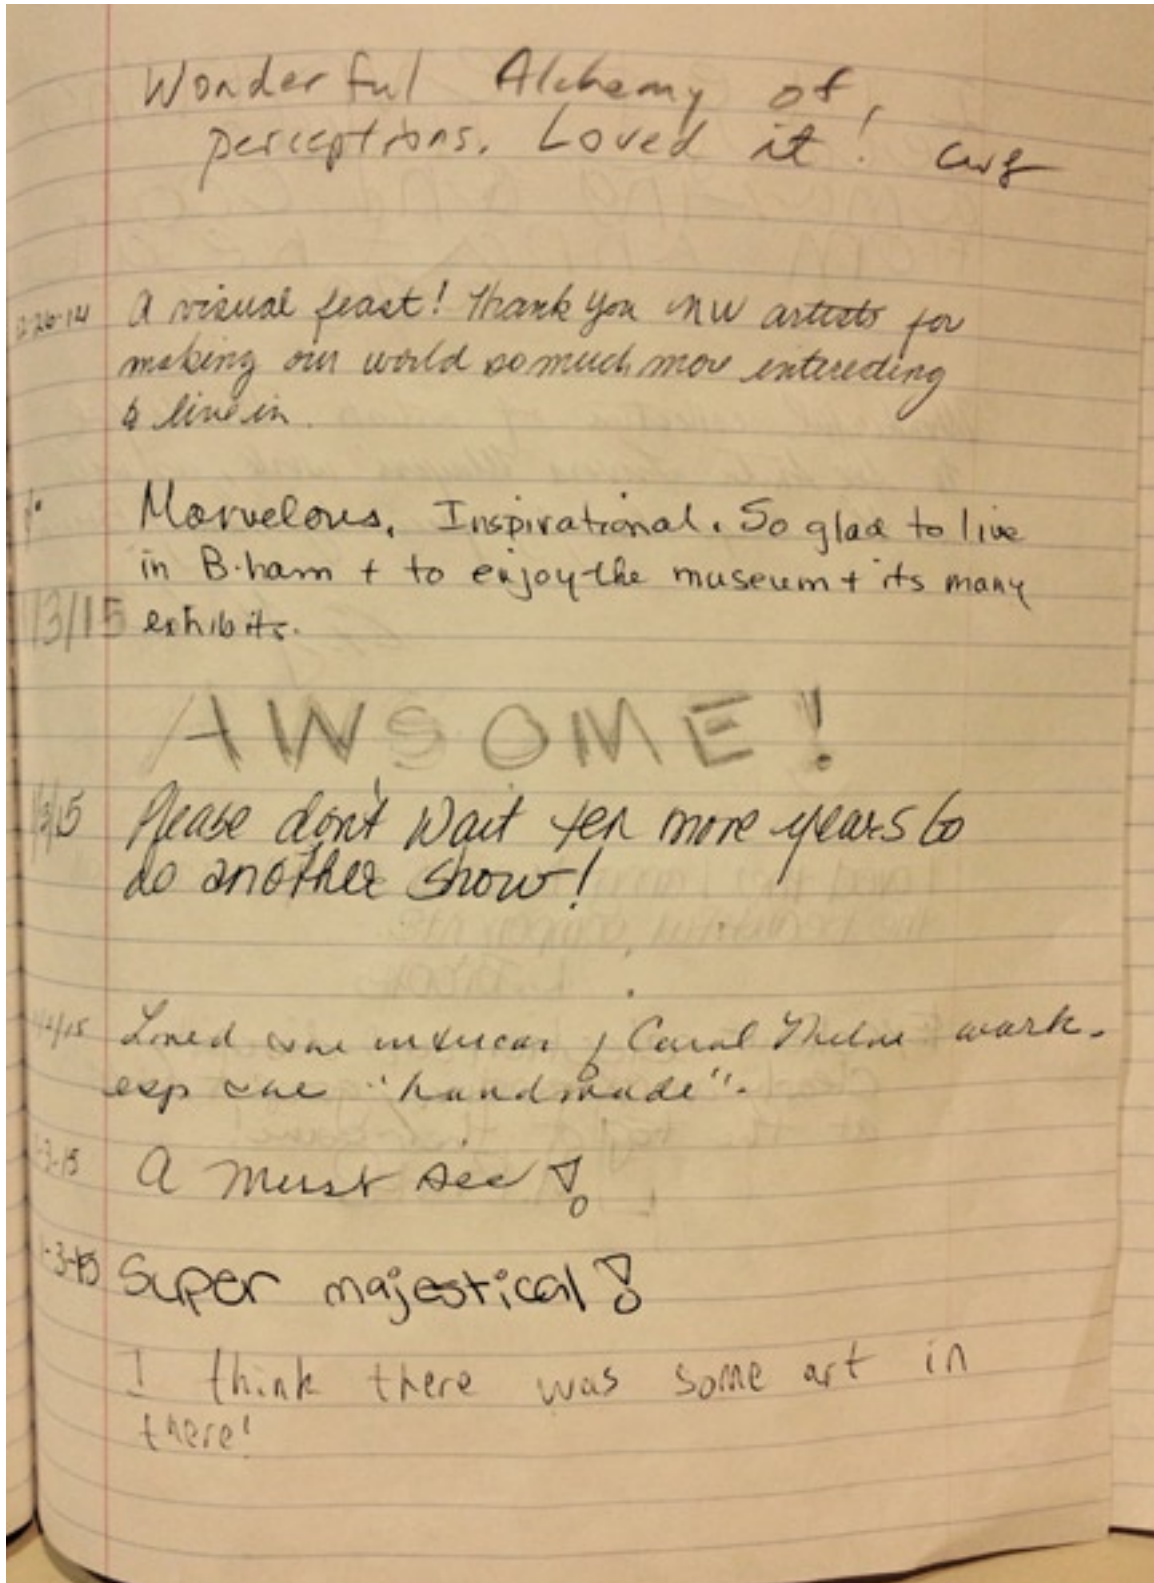 Wonderful Alchemy of
perceptions. Loved it!
12-26-14 A visual feast! Thank you NW artists for
making our world so much more intereding
to live in.
Marvelous, Inspirational. So glad to live
in B.ham + to enjoy the museum + its many
1/3/15 exhibits.
AWSOME!
1/3/15 Please don't wait ten more years to
do another show!
Loved Carol Milne work.
esp "handmade".
A must see!
1-3-15 Super majestical!
I think there was some art in
there!